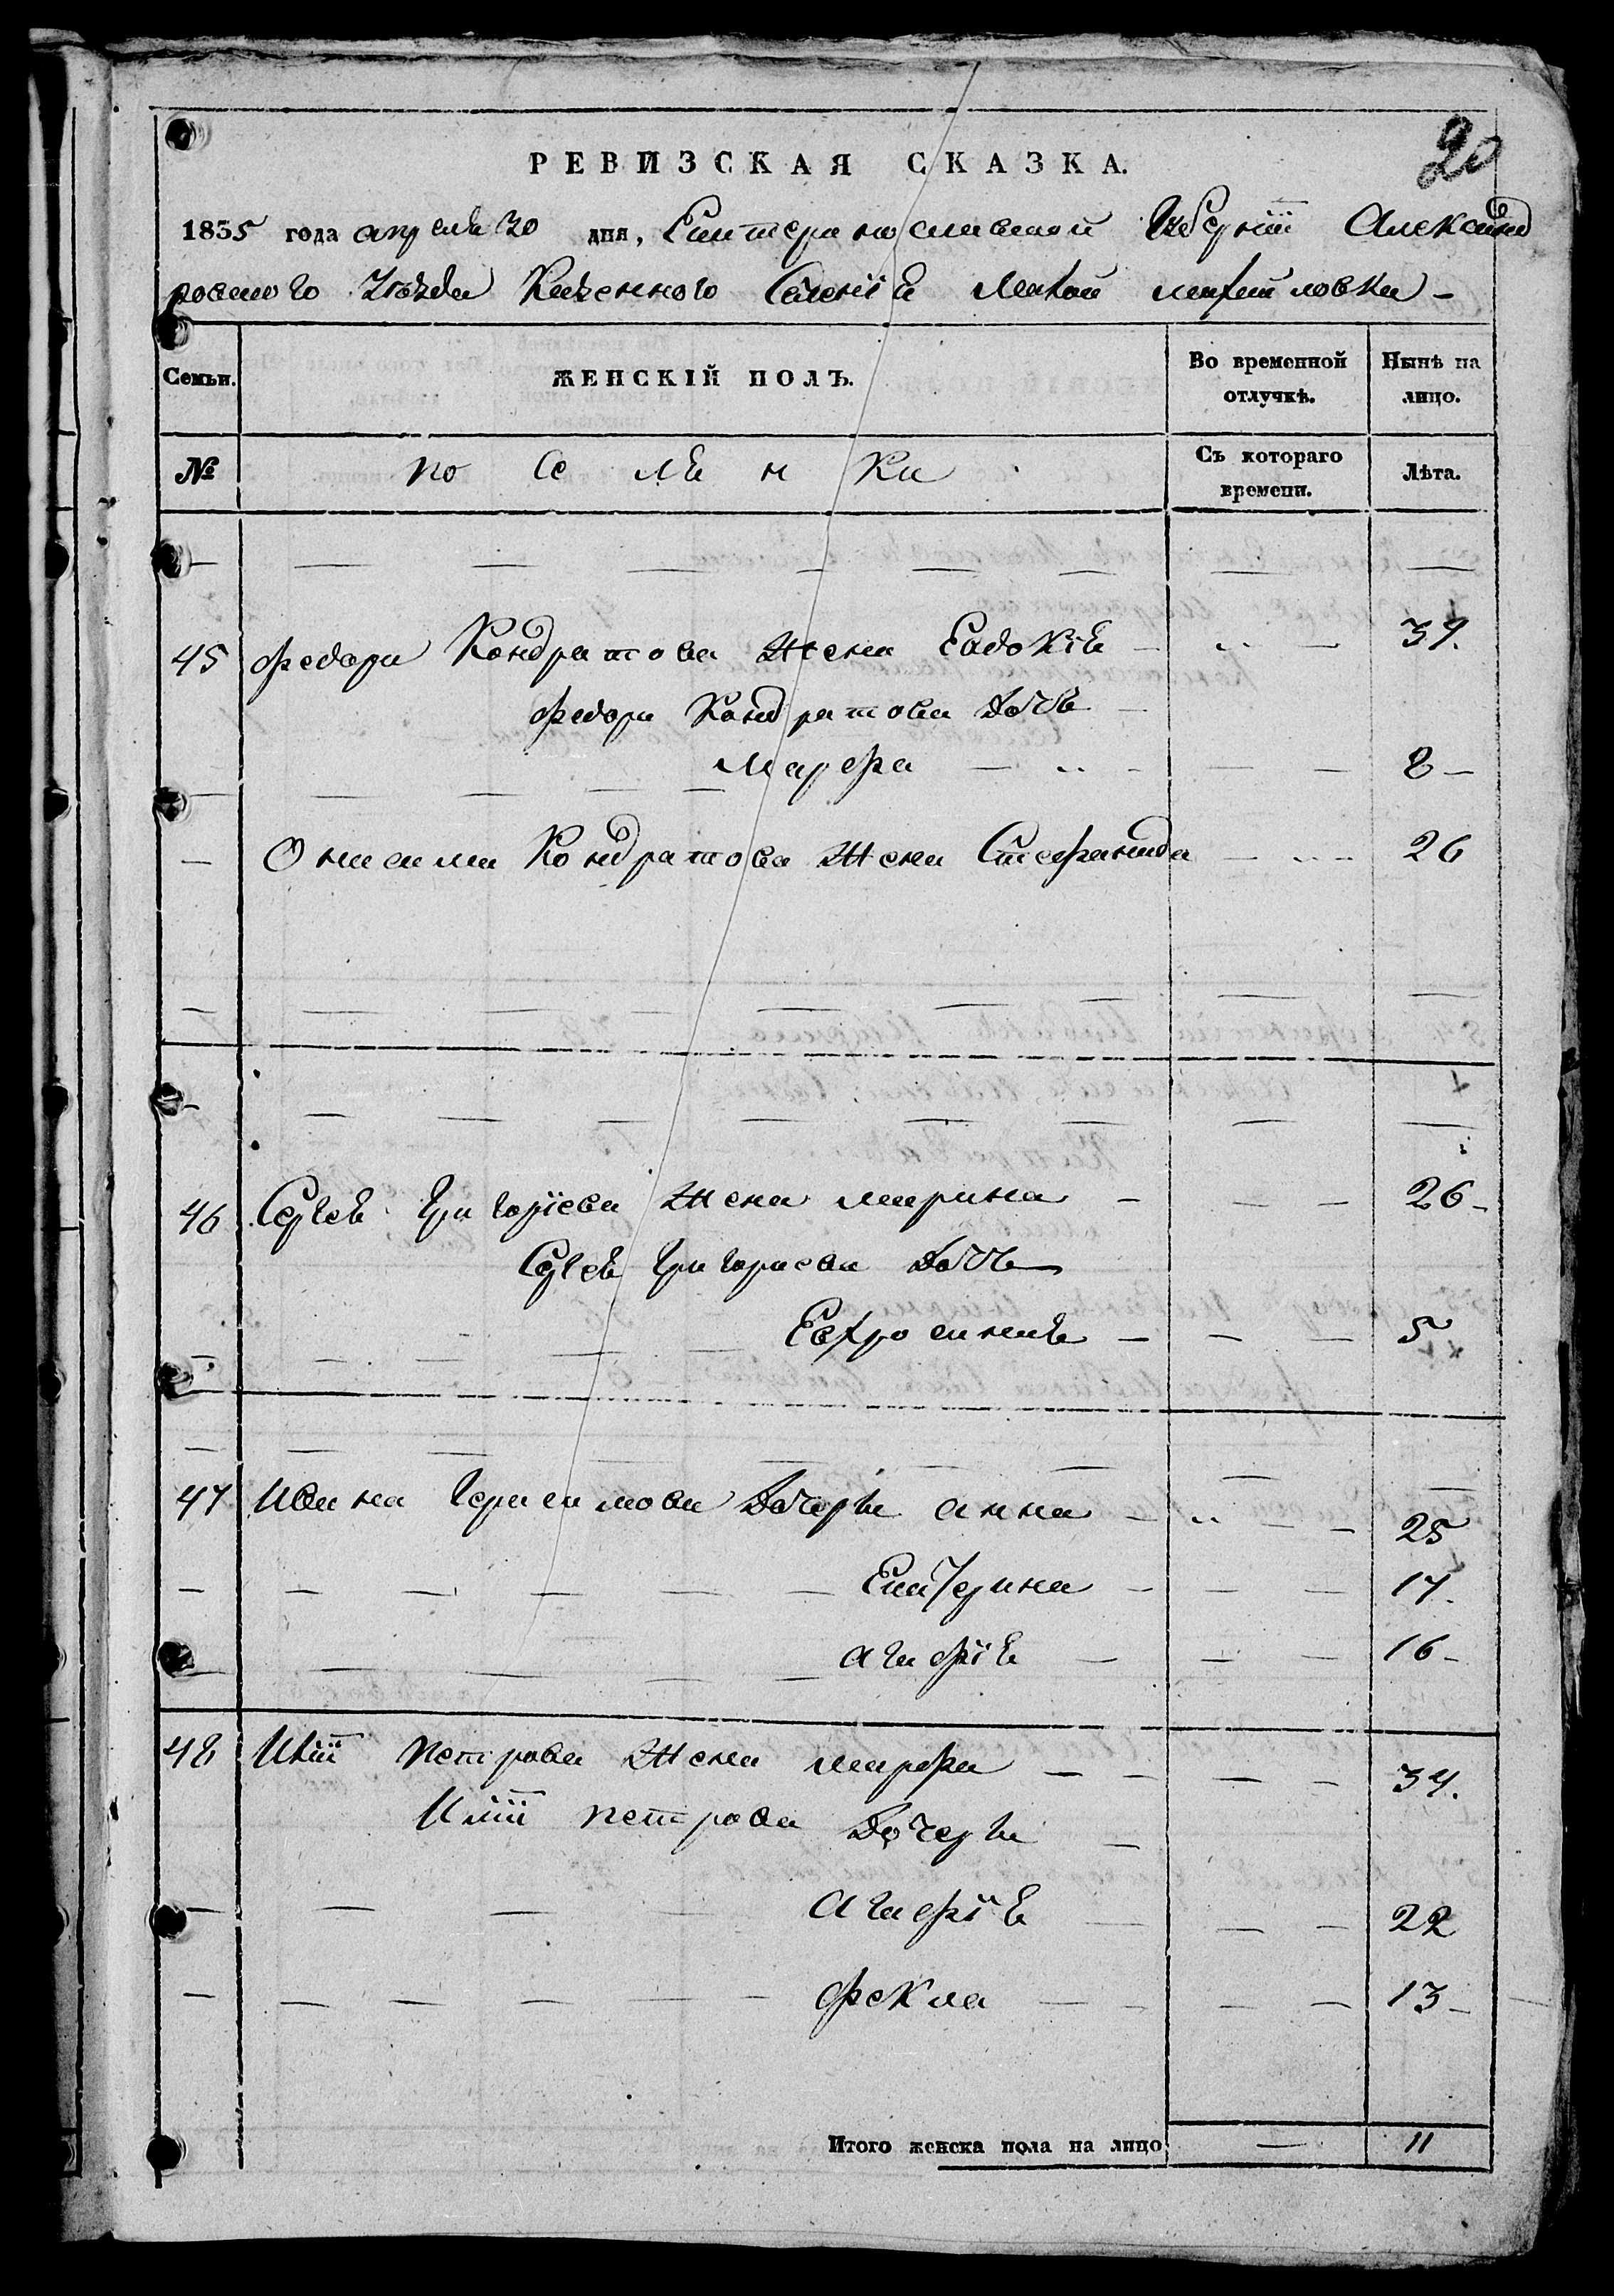 20
РЕВИЗСКАЯ СКАЗКА.
1835 года апреля 30 дня, Екатеринославской Губернiи Александ
ровского Уѣзда Казенного Селенiя Малой Михайловки -
Семьи. ЖЕНСКIЙ ПОЛЪ. Во временной отлучкѣ. Нынѣ на лицо.
№ Поселянки Съ котораго времени. Лѣта.
45 Федора Кондратова жена Евдокiя 39.
Федора Кондратова дочь
Марфа 8
Онисима Кондратова жена Стефанида 26
46 Сергея Григорiева жена Марина 26
Сергея Григориева дочь
Евфросиния 5
47 Ивана Герасимова дочери Анна 25
Екатерина 17.
Агафiя 16
48 Илiи Петрова жена Марфа 34.
Илiи Петрова дочери
Агафiя 22
Фекла 13
Итого женска пола на лицо — 11